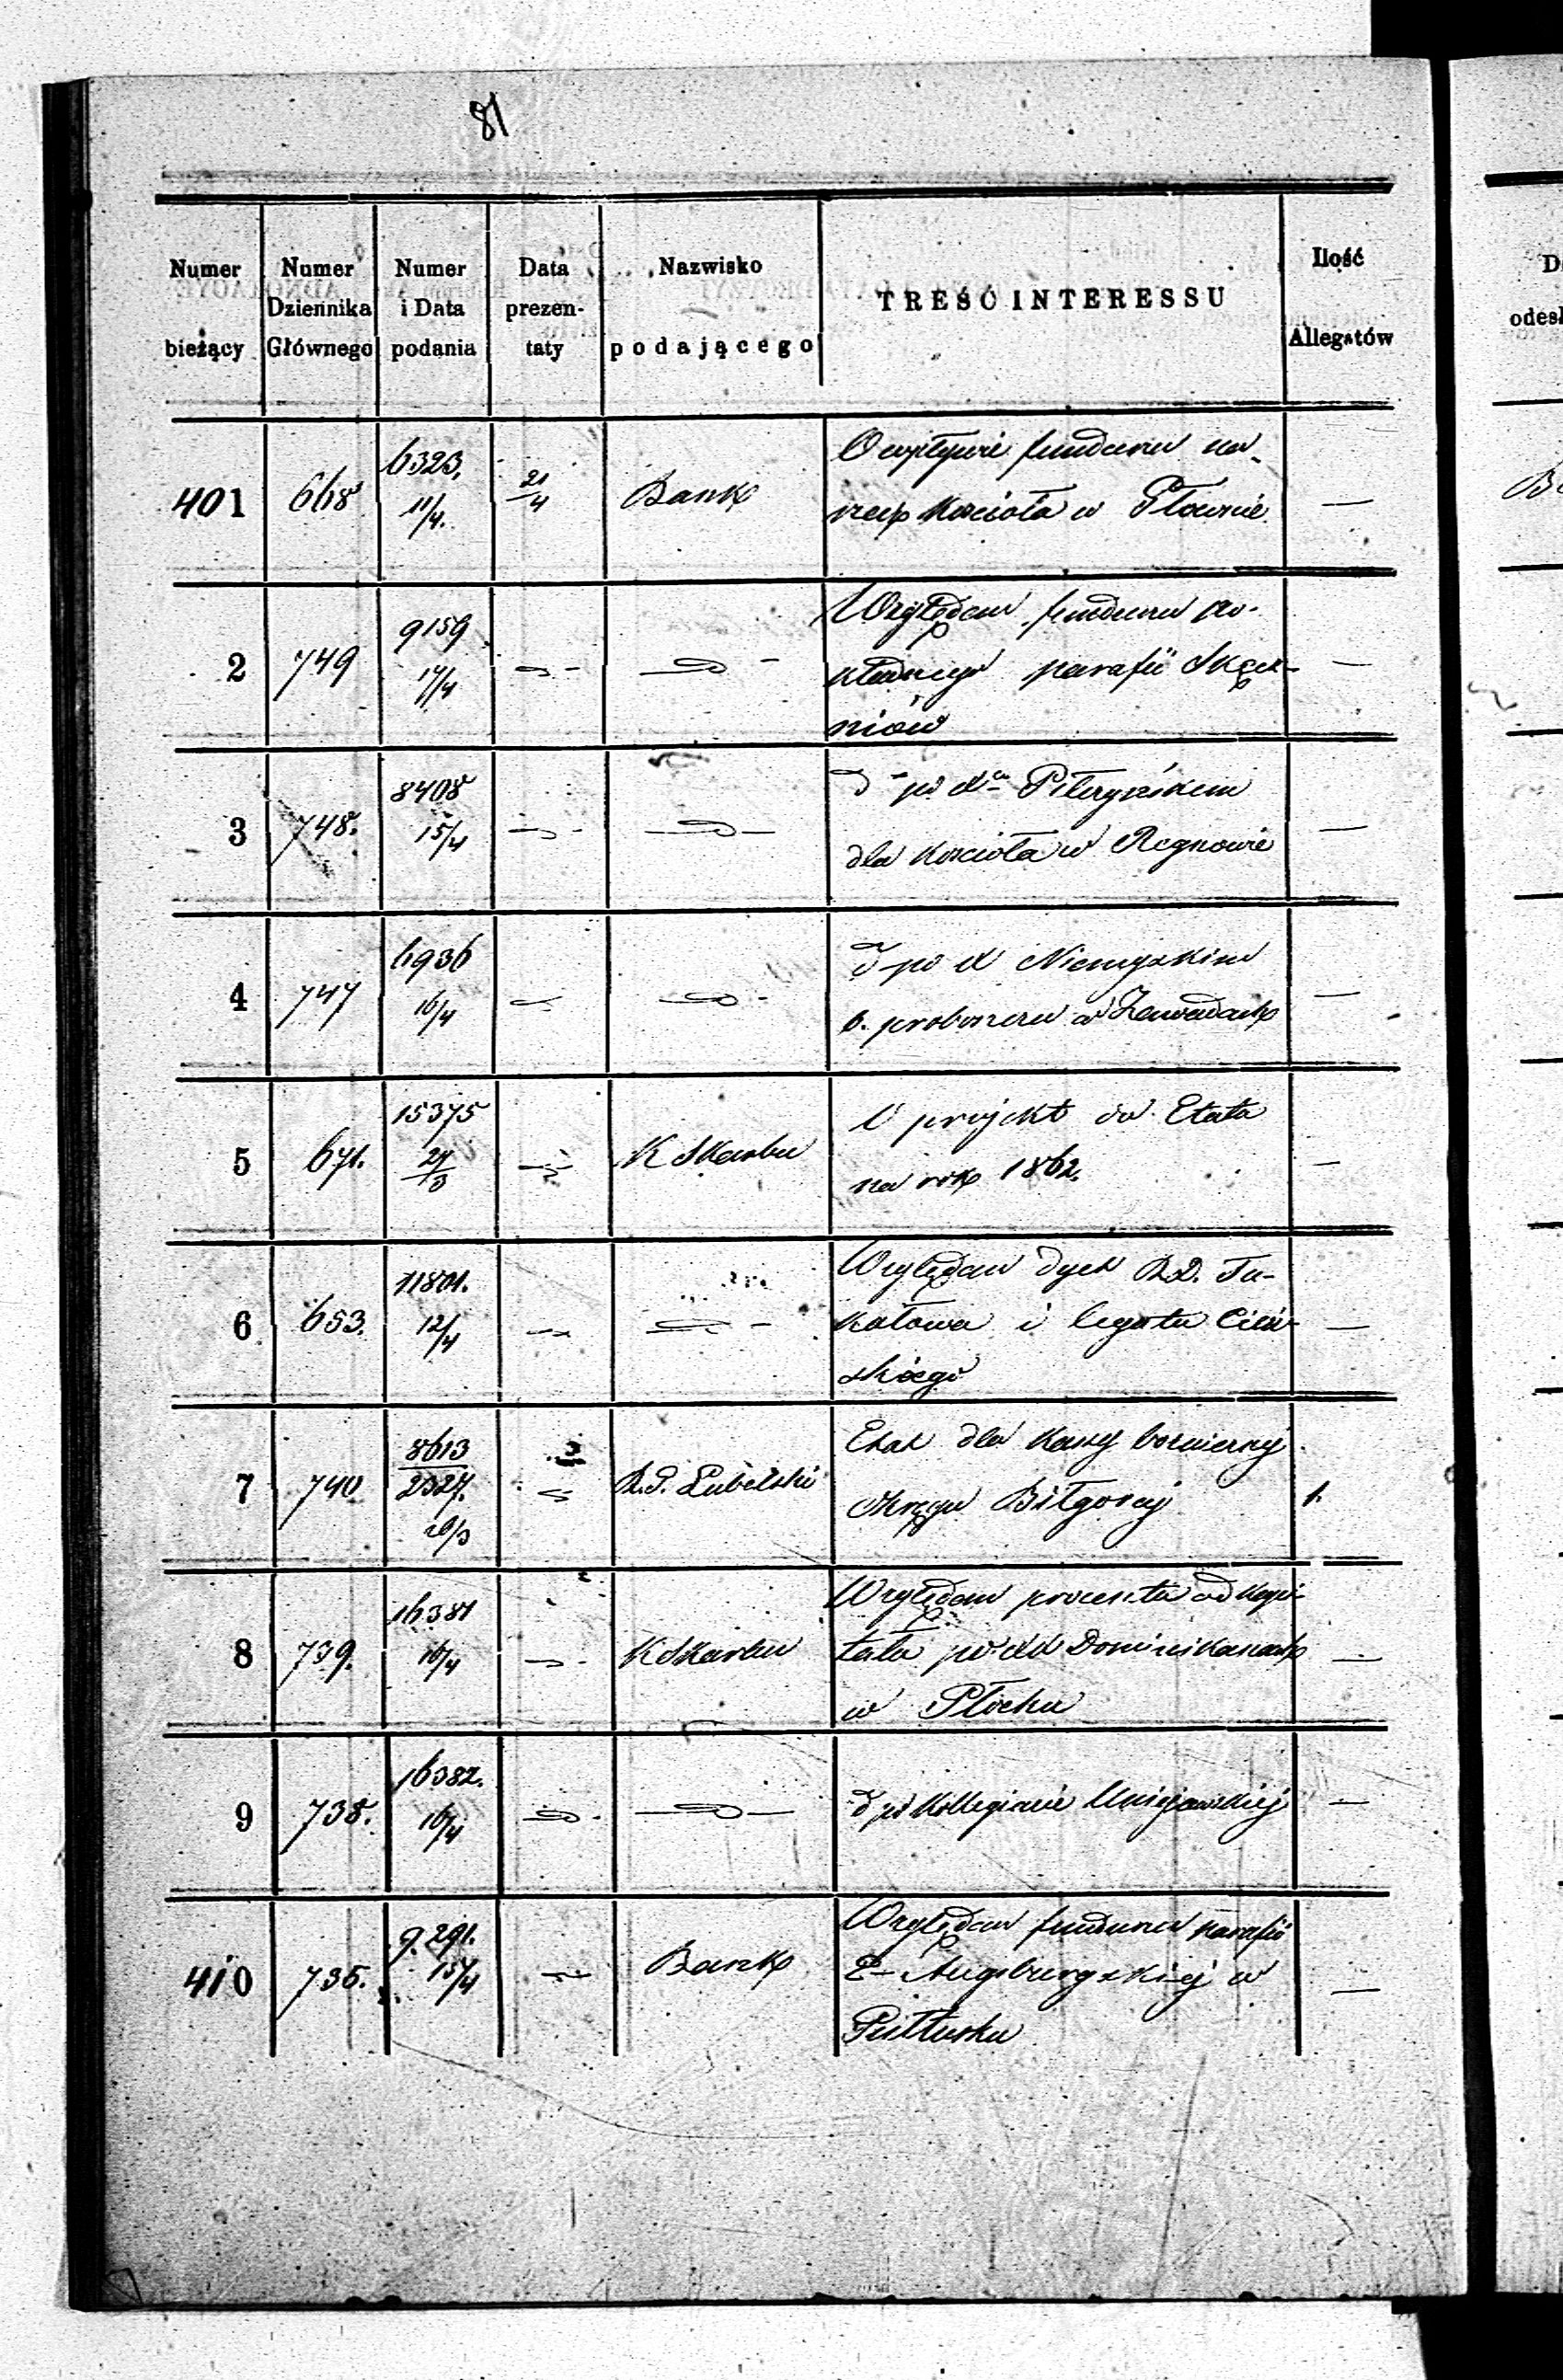 81
Numer bieżący | Numer Dziennika Głównego | Numer i Data podania | Data prezentaty | Nazwisko podającego | TREŚĆ INTERESSU | Ilość Allegatów
401 | 668 | 6323. 11/4. | 21/4 | Bank | O wpływie funduszu na
rzecz Kościoła w Głownie. | —
2 | 749 | 9159 17/4 | Względem funduszu po-
kładnego parafii Skęcz-
niów | —
3 | 748. | 8408 15/4 | po Xu
dla Kościoła w Regnowie | —
4 | 747 | 6936 16/4 | po X
b. proboszczu w Zawadach | —
5 | 671. | 15375 | K Skarbu | O projekt do Etatu
na rok 1862. | —
6 | 653. | 11801. 12/4 | Względem
i legatu
skiego | —
7 | 740 | 8613 2327. | R.G. Lubelski | Etat dla Kassy bożniczej
Okręgu Biłgoraj | 1.
8 | 739. | 16381 16/4 | K Skarbu | Względem procentu od kapi-
tału po XX Dominikanach
w Płocku | —
9 | 738. | 16382. 16/4 | d po Kollegiacie Uniejowskiej | —
410 | 735. | 9291. 15/4 | Bank | Względem funduszu parafii
E- Augsburgskiej w
Pułtusku | —